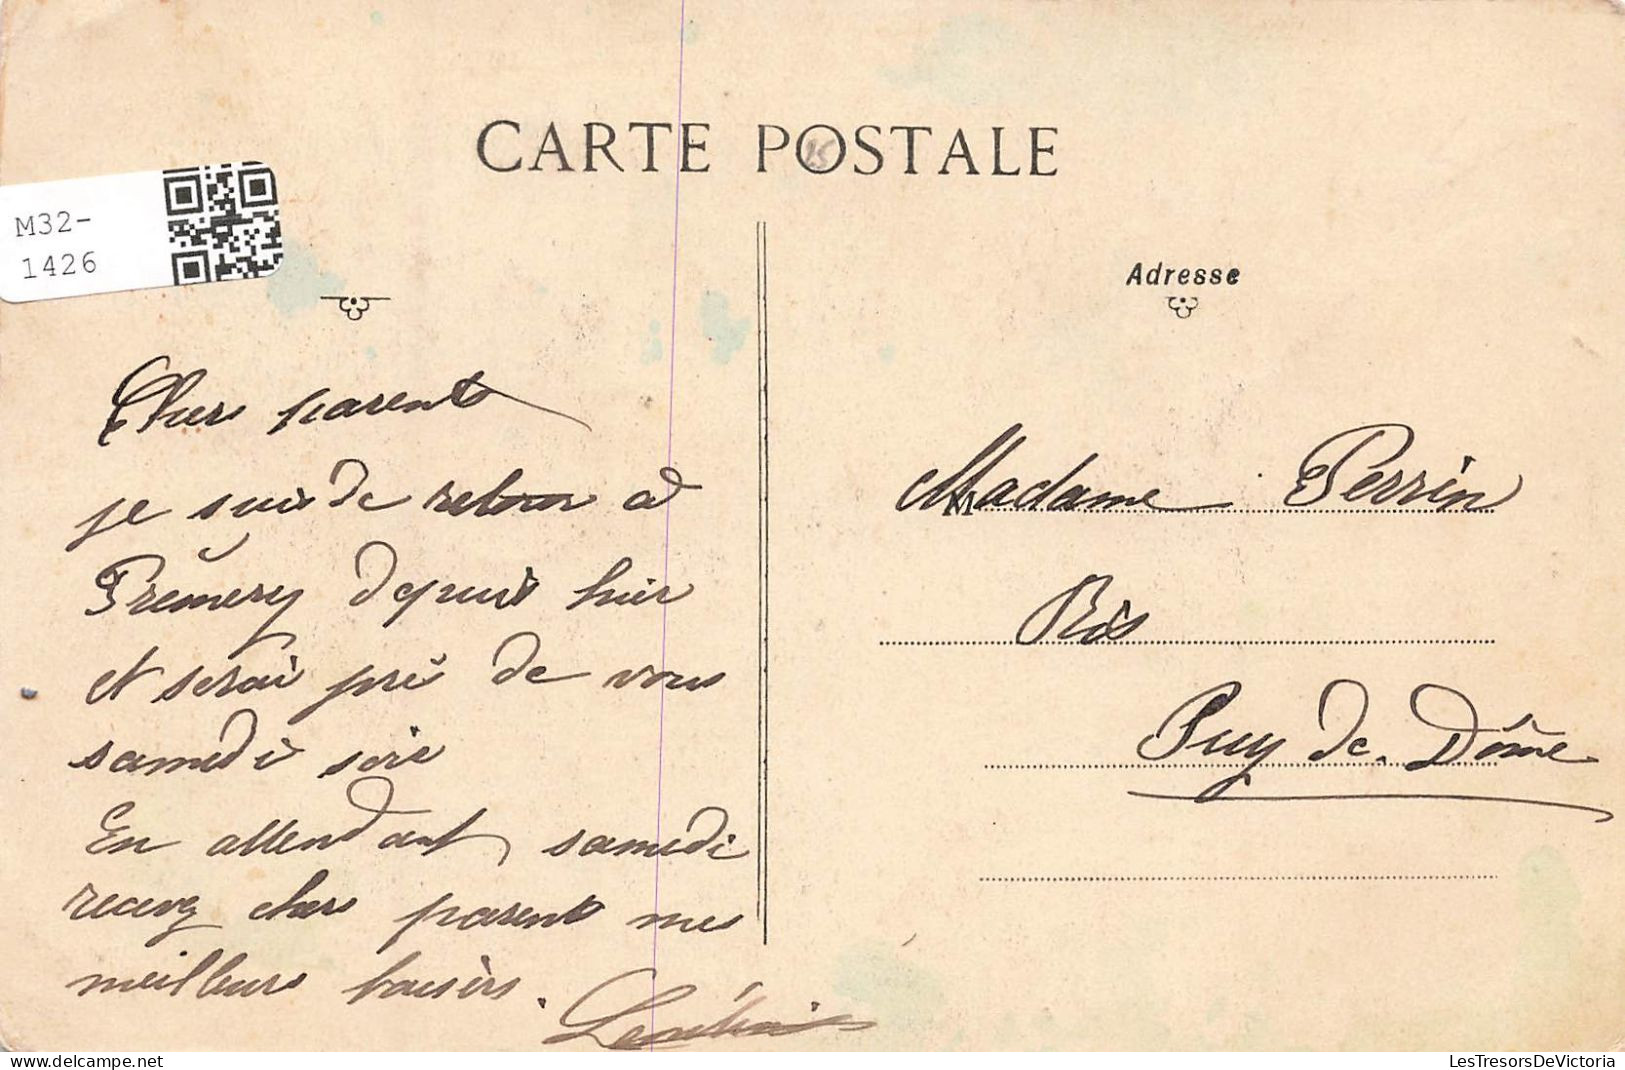 CARTE POSTALE
M32-
1426
Adresse
Chers parents
je suis de retour à
Prémery depuis hier
et serai prè de vous
samedi soir
En attendant samedi
recevez chers parents mes
meilleurs baisers.
Madame Perrin
Ris
Puy de. Dôme
LesTresorsDeVictoria